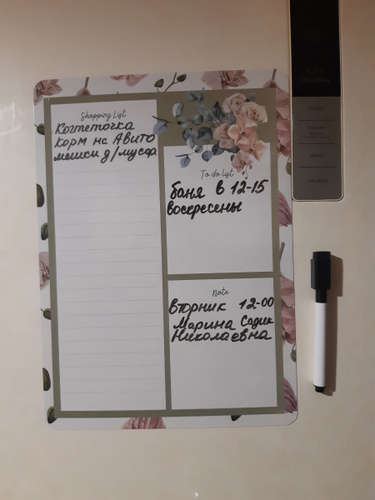 Shopping Lyst
Когтеточка
корм на Авито
мешки д/мусора
To do lyst
баня в 12-15
воскресены
Note
вторник 12-00
Марина Садик
Николаевна